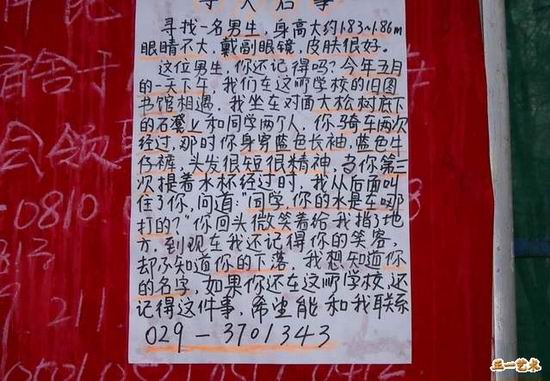 寻人启事
寻找一名男生，身高大约1.83~1.86m
眼睛不大，戴副眼镜，皮肤很好。
这位男生，你还记得吗？今年五月
的一天下午，我们在这所学校的旧图
书馆相遇，我坐在对面大松树底下
的石凳上和同学两个人，你骑车两次
经过，那时你身穿蓝色长袖，蓝色牛
仔裤，头发很短很精神，当你第三
次提着水杯经过时，我从后面叫
住了你，问道："同学，你的水是在哪
打的？"你回头微笑着给我指了地
方，到现在我还记得你的笑容，
却不知道你的下落，我想知道你
的名字，如果你还在这所学校，还
记得这件事，希望能和我联系
029-3701343
宿舍
会领
0810
211
正一艺术